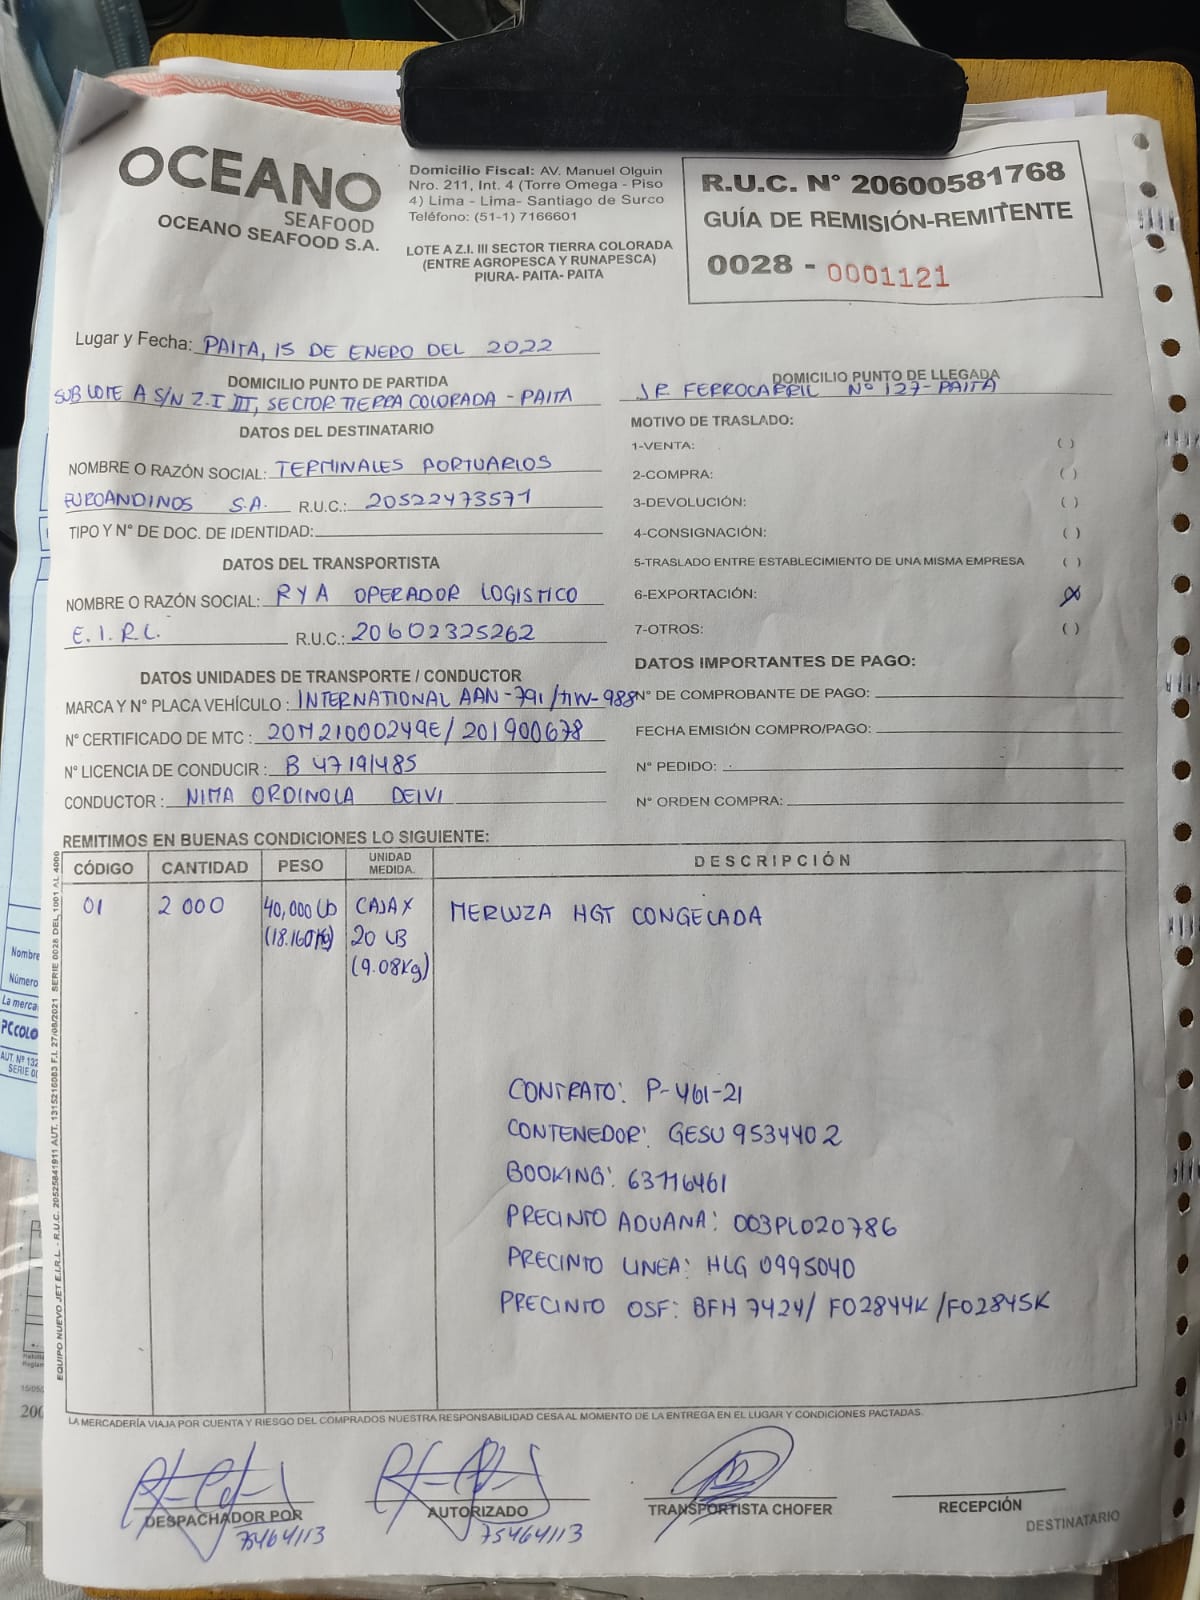 OCEANO
SEAFOOD
OCEANO SEAFOOD S.A.
Domicilio Fiscal: AV. Manuel Olguin
Nro. 211, Int. 4 (Torre Omega - Piso
4) Lima - Lima- Santiago de Surco
Teléfono: (51-1) 7166601
LOTE A Z.I. III SECTOR TIERRA COLORADA
(ENTRE AGROPESCA Y RUNAPESCA)
PIURA- PAITA- PAITA
R.U.C. N° 20600581768
GUÍA DE REMISIÓN-REMITENTE
0028 - 0001121
Lugar y Fecha: PAITA, 15 DE ENERO DEL 2022
DOMICILIO PUNTO DE PARTIDA
SUB LOTE A S/N Z.I III, SECTOR TIERRA COLORADA - PAITA
DOMICILIO PUNTO DE LLEGADA
JR FERROCARRIL Nº 127-PAITA
DATOS DEL DESTINATARIO
NOMBRE O RAZÓN SOCIAL: TERMINALES PORTUARIOS
EUROANDINOS S.A. R.U.C.: 20522473571
TIPO Y N° DE DOC. DE IDENTIDAD:
DATOS DEL TRANSPORTISTA
NOMBRE O RAZÓN SOCIAL: R Y A OPERADOR LOGISTICO
E.I.R.L. R.U.C.: 20602325262
DATOS UNIDADES DE TRANSPORTE / CONDUCTOR
MARCA Y N° PLACA VEHÍCULO : INTERNATIONAL AAN-791/TIW-988
N° CERTIFICADO DE MTC : 20M21000249E/ 201900678
N° LICENCIA DE CONDUCIR : B 47191485
CONDUCTOR : NIMA ORDINOLA DEIVI
MOTIVO DE TRASLADO:
1-VENTA: ( )
2-COMPRA: ( )
3-DEVOLUCIÓN: ( )
4-CONSIGNACIÓN: ( )
5-TRASLADO ENTRE ESTABLECIMIENTO DE UNA MISMA EMPRESA ( )
6-EXPORTACIÓN: (X)
7-OTROS: ( )
DATOS IMPORTANTES DE PAGO:
N° DE COMPROBANTE DE PAGO:
FECHA EMISIÓN COMPRO/PAGO:
N° PEDIDO:
N° ORDEN COMPRA:
REMITIMOS EN BUENAS CONDICIONES LO SIGUIENTE:
CÓDIGO CANTIDAD PESO UNIDAD MEDIDA. DESCRIPCIÓN
01 2 000 40,000 LB CAJA X MERLUZA HGT CONGELADA
(18.160 Kg) 20 LB
(9.08Kg)
CONTRATO: P-461-21
CONTENEDOR: GESU 9534402
BOOKING: 63716461
PRECINTO ADUANA: 003PL020786
PRECINTO LINEA: HLG 0995040
PRECINTO OSF: BFH 7424/ F02844K /F02845K
EQUIPO NUEVO JET E.I.R.L. - R.U.C. 20525841911 AUT. 1315216083 F.I. 27/08/2021 SERIE 0028 DEL 1001 AL 4000
LA MERCADERÍA VIAJA POR CUENTA Y RIESGO DEL COMPRADOS NUESTRA RESPONSABILIDAD CESA AL MOMENTO DE LA ENTREGA EN EL LUGAR Y CONDICIONES PACTADAS.
DESPACHADOR POR
75464113
AUTORIZADO
75464113
TRANSPORTISTA CHOFER
RECEPCIÓN
DESTINATARIO
Nombre
Número
La merca